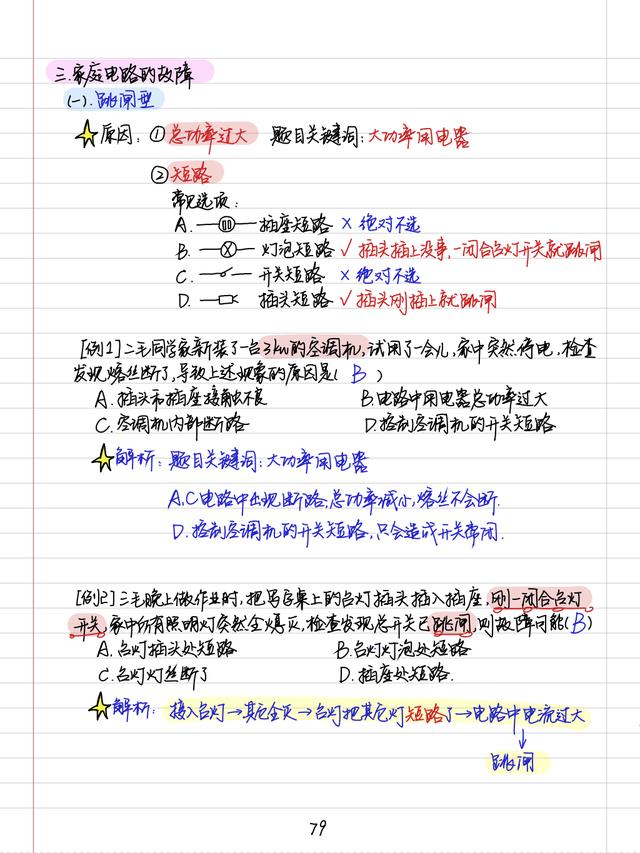 三.家庭电路的故障
(一).跳闸型
原因: ①总功率过大 题目关键词:大功率用电器
②短路
常见选项:
A. 插座短路 × 绝对不选
B. 灯泡短路 √ 插头插上没事,一闭合台灯开关就跳闸
C. 开关短路 × 绝对不选
D. 插头短路 √ 插头刚插上就跳闸
[例1]二毛同学家新装了一台3kw的空调机,试用了一会儿,家中突然停电,检查
发现熔丝断了,导致上述现象的原因是( B )
A.插头和插座接触不良 B.电路中用电器总功率过大
C.空调机内部断路 D.控制空调机的开关短路
解析: 题目关键词:大功率用电器
A.C电路中出现断路,总功率减小,熔丝不会断.
D.控制空调机的开关短路,只会造成开关常闭.
[例2]三毛晚上做作业时,把写字桌上的台灯插头插入插座,刚一闭合台灯
开关,家中所有照明灯突然全熄灭,检查发现总开关已跳闸,则故障可能(B)
A.台灯插头处短路 B.台灯灯泡处短路
C.台灯灯丝断了 D.插座处短路.
解析: 接入台灯→其它全灭→台灯把其它灯短路了→电路中电流过大
↓
跳闸
79